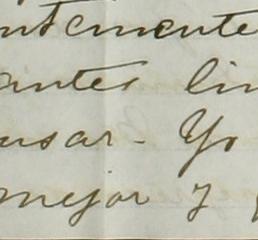 ntemente
antes lin
usar - Yo
mejor y